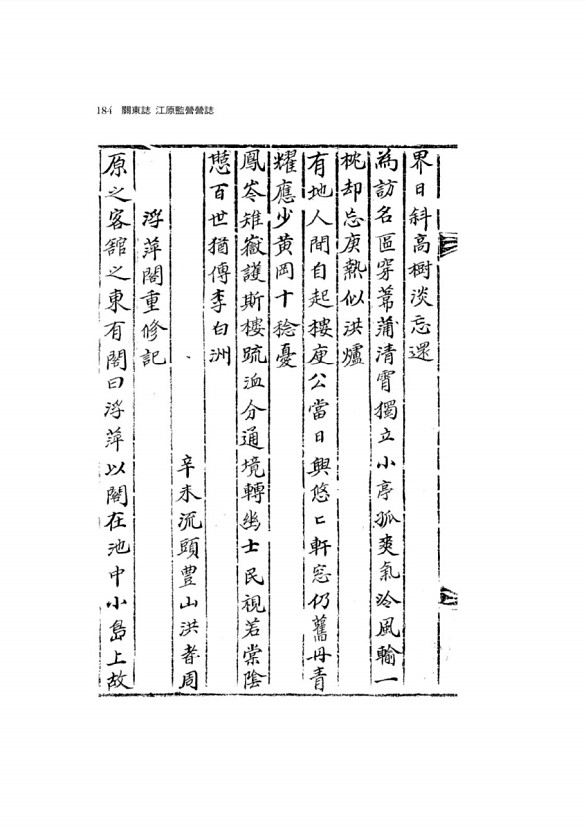 184 關東誌 江原監營營誌
界日斜高樹淡忘還
為訪名區穿葦蒲清霄獨立小亭孤爽氣冷風輸一
枕却忘庚熱似洪爐
有地人間自起樓庾公當日興悠〻軒窓仍舊丹青
耀應少黃岡十稔憂
鳳岑雉嶽護斯樓疏洫分通境轉幽士民視若棠陰
憇百世猶傳李白洲
辛未流頭豊山洪耆周
浮萍閣重修記
原之客舘之東有閣曰浮萍以閣在池中小島上故